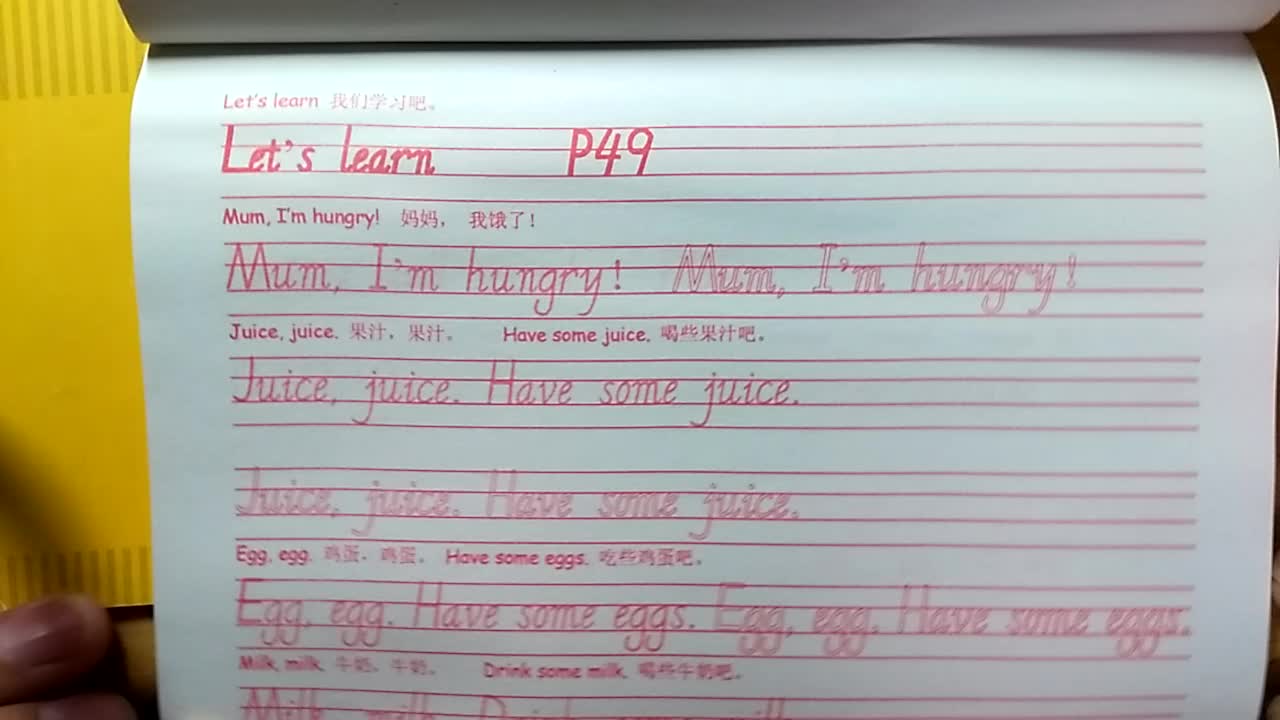 Let's learn 我们学习吧。
Let's learn P49
Mum, I'm hungry! 妈妈， 我饿了！
Mum, I'm hungry! Mum, I'm hungry!
Juice, juice. 果汁，果汁。 Have some juice. 喝些果汁吧。
Juice, juice. Have some juice.
Juice, juice. Have some juice.
Egg, egg. 鸡蛋，鸡蛋。 Have some eggs. 吃些鸡蛋吧。
Egg, egg. Have some eggs. Egg, egg. Have some eggs.
Milk, milk. 牛奶，牛奶。 Drink some milk. 喝些牛奶吧。
Milk, milk. Drink some milk.